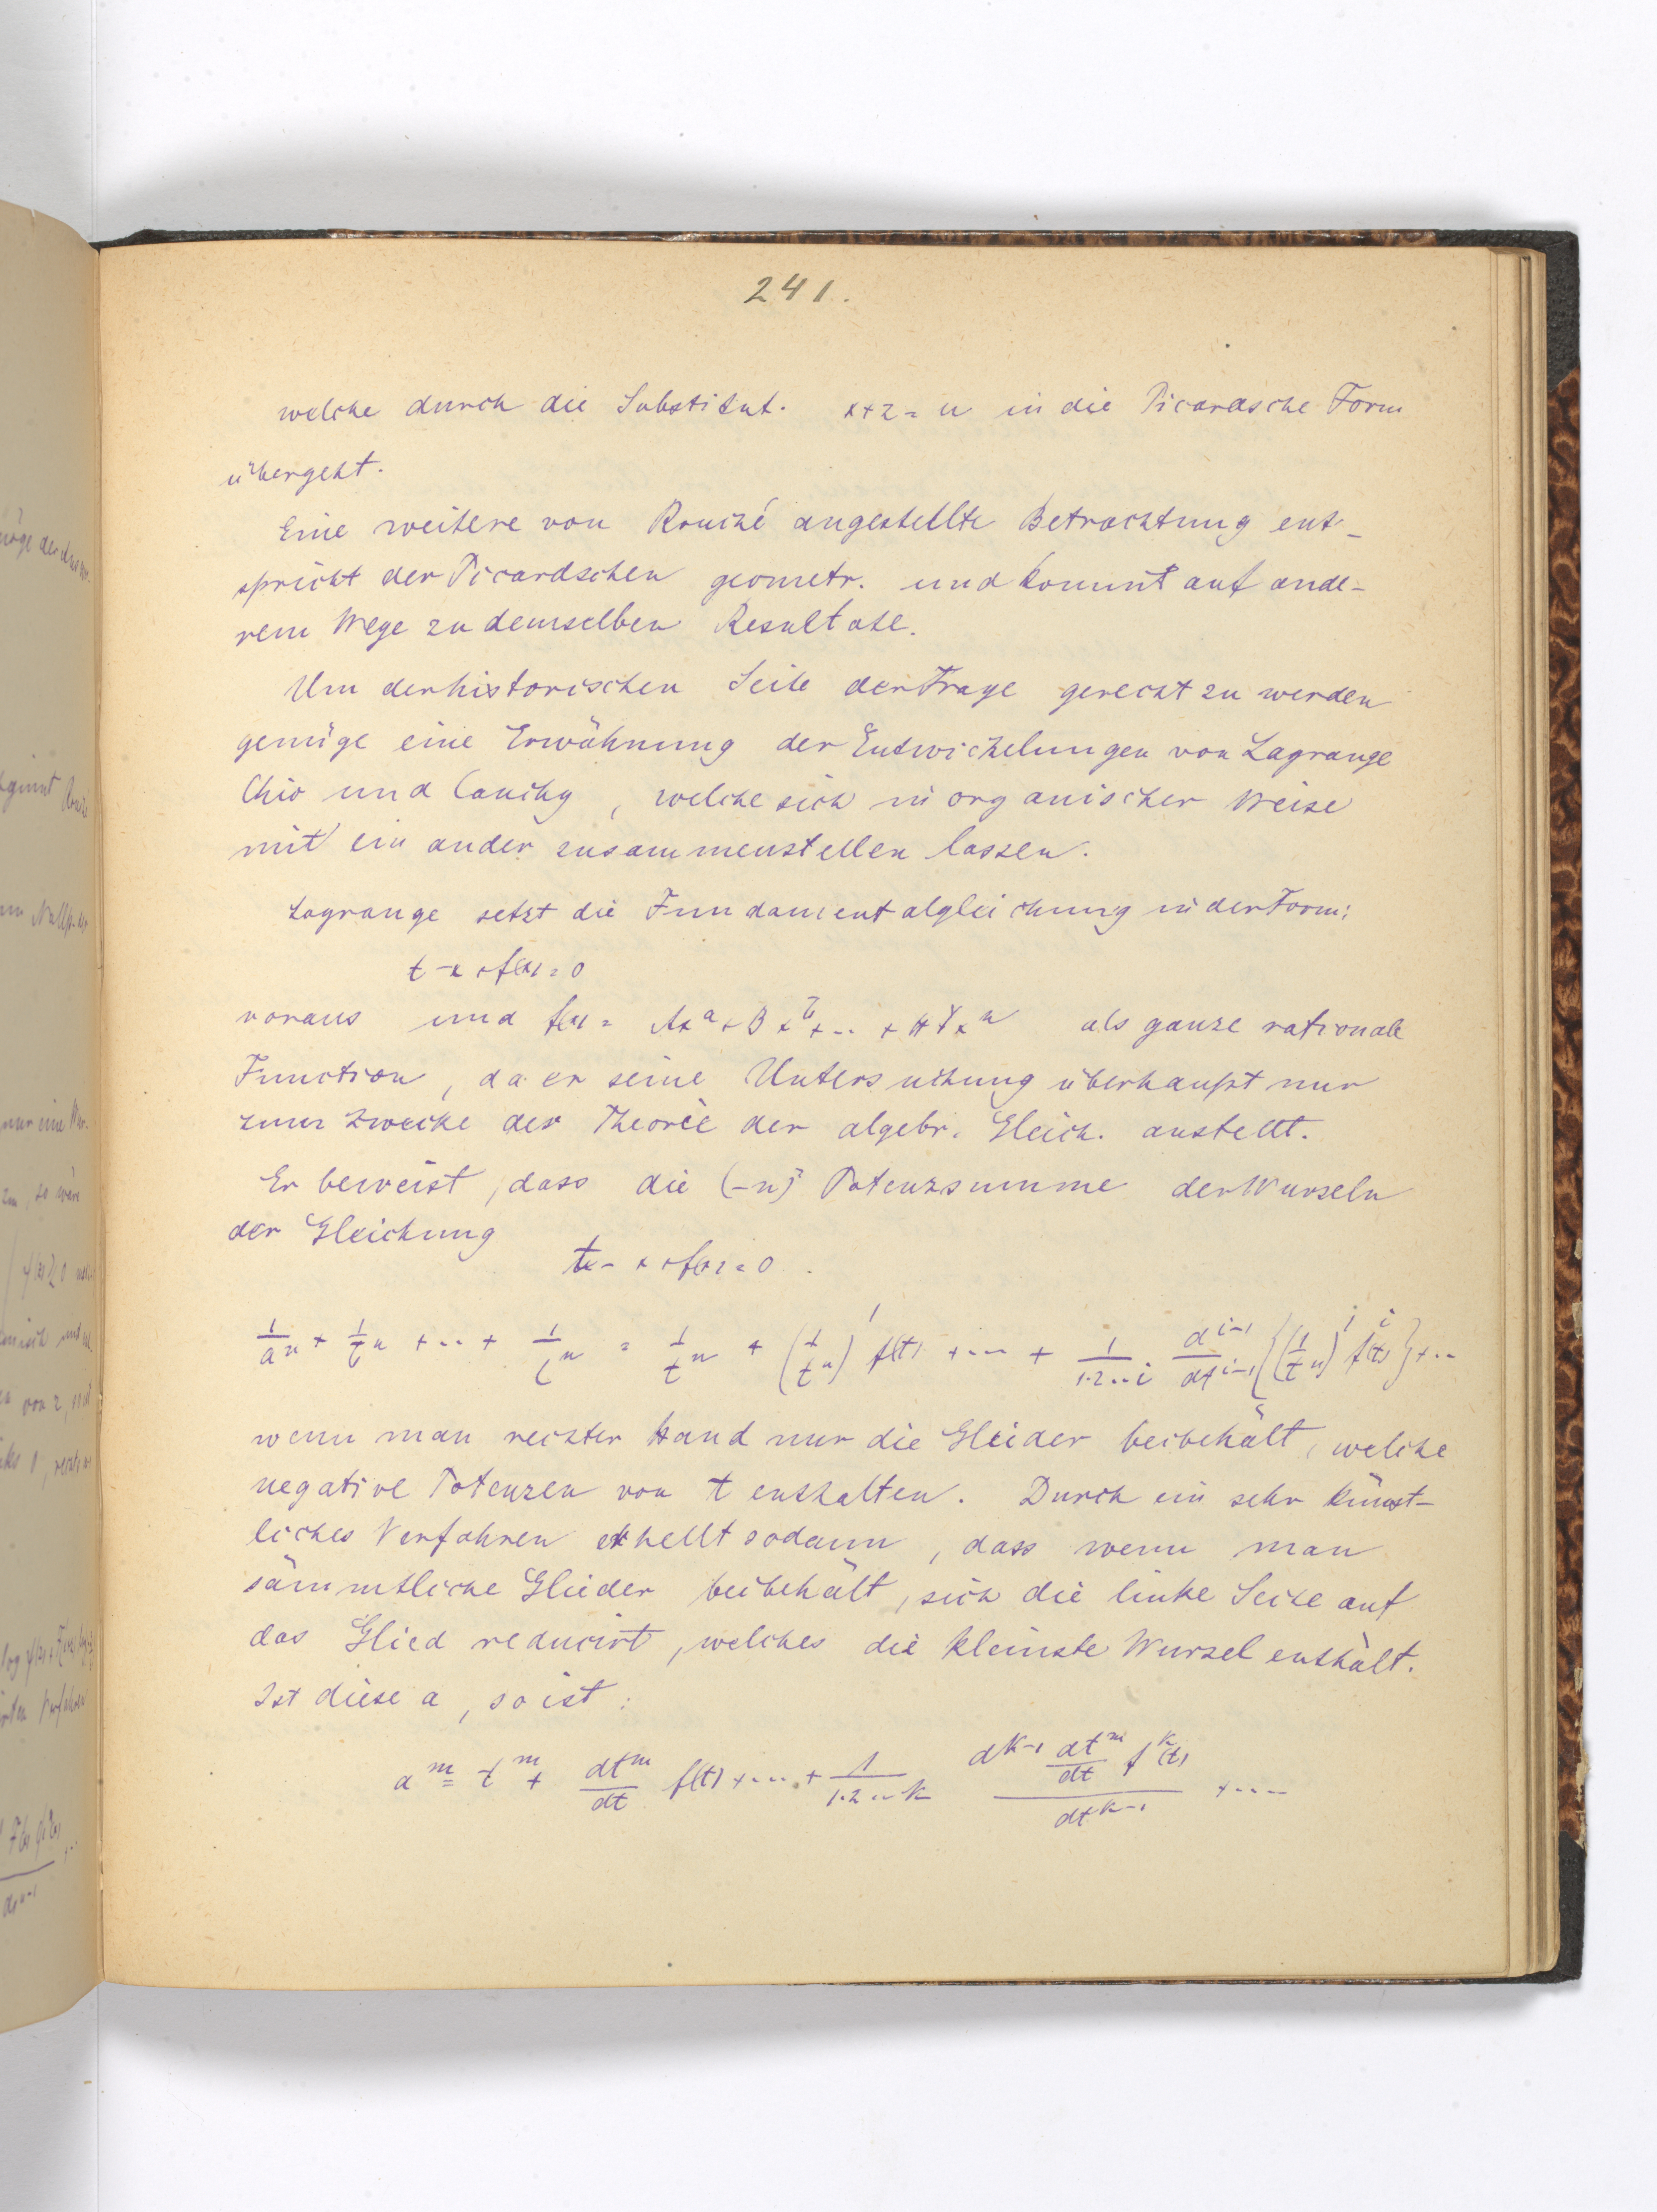 241.
welche durch die Substitut. x+z = u in die Picardsche Form
übergeht.
Eine weitere von Rouché angestellte Betrachtung ent-
spricht der Picardschen geometr. und kommt auf ande-
rem Wege zu demselben Resultate.
Um der historischen Seite der Frage gerecht zu werden
genüge eine Erwähnung der Entwickelungen von Lagrange
Chio und Cauchy, welche sich in organischer Weise
mit ein ander zusammenstellen lassen.
Lagrange setzt die Fundamentalgleichung in der Form:
t - x + f(x) = 0
voraus und f(x) = Ax^a + Bx^b + .. + x^n als ganze rationale
Function, da er seine Untersuchung überhaupt nur
zum Zwecke der Theorie der algebr. Gleich. anstellt.
Er beweist, dass die (-n)^te Potenzsumme der Wurzeln
der Gleichung
t - x + f(x) = 0.
1/a^n + 1/b^n + ... + 1/l^n = 1/t^n + (1/t^n)' f(t) + ... + 1/1.2...i d^{i-1}/dt^{i-1} {(1/t^n)' f^i(t)} + ..
wenn man rechter Hand nur die Glieder beibehält, welche
negative Potenzen von t enthalten. Durch ein sehr künst-
liches Verfahren erhellt sodann, dass wenn man
sämmtliche Glieder beibehält, sich die linke Seite auf
das Glied reducirt, welches die kleinste Wurzel enthält.
Ist diese a, so ist:
a^m = t^m + dt^m/dt f(t) + .... + 1/1.2...k d^{k-1} dt^m/dt f^k(t) / dt^{k-1} + ....